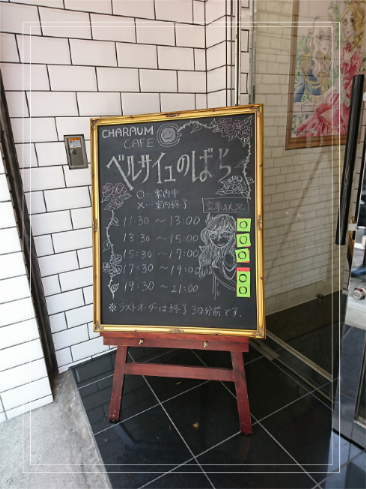 CHARAUM
CAFE
ベルサイユのばら
○…案内中
×…案内終了
空席状況
11:30 ~ 13:00 ○
13:30 ~ 15:00 ○
15:30 ~ 17:00 ○
17:30 ~ 19:00 ○
19:30 ~ 21:00 ○
※ラストオーダーは終了30分前です。